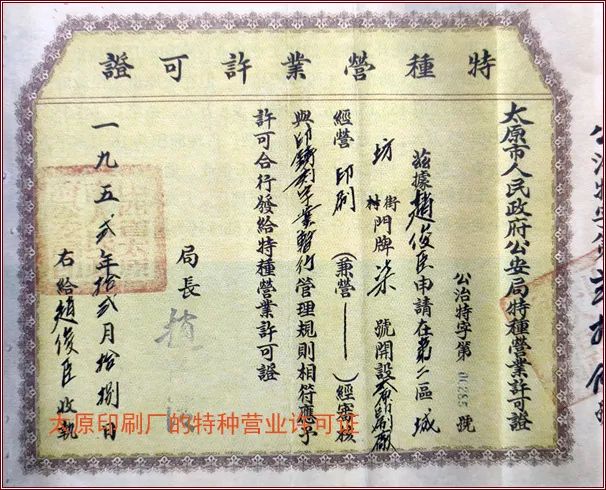 特種營業許可證
太原市人民政府公安局特種營業許可證
公治特字第 號
茲據趙俊臣申請在第二區城
坊 街村 門牌柒 號開設 印刷廠
經營 印刷 (兼營 ) 經審核
與印鑄刻字業暫行管理規則相符應予
許可合行發給特種營業許可證
局長
一九五貳年拾貳月拾捌日
右給趙俊臣收執
太原印刷厂的特种营业许可证
公治特字第